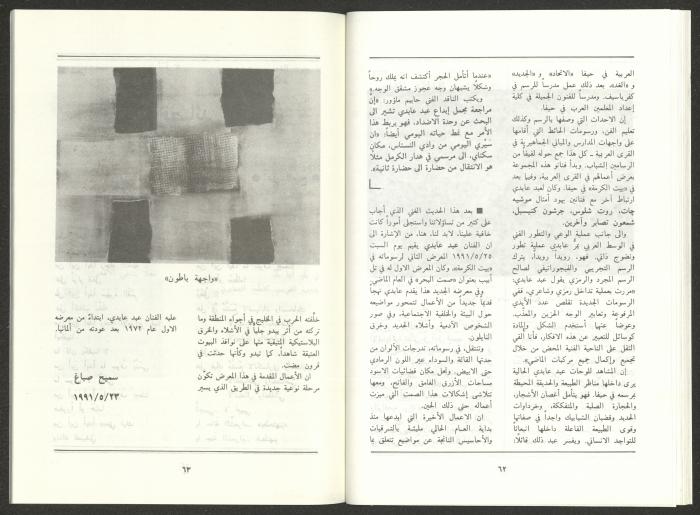 العربية في حيفا «الاتحاد» و«الجديد»
و«الغد». بعد ذلك عمل مدرساً للرسم في
كفرياسيف، ومدرساً للفنون الجميلة في كلية
إعداد المعلمين العرب في حيفا.
إن الاحداث التي وصفها بالرسم وكذلك
تعليم الفن، ورسومات الحائط التي أقامها
على واجهات المدارس والمباني الجماهيرية في
القرى العربية ـ كل هذا جمع حوله لفيفاً من
الرسامين الشباب. وبدأ فنانو هذه المجموعة
بعرض أعمالهم في القرى العربية، وفيما بعد
في «بيت الكرمة» في حيفا. وكان لعبد عابدي
ارتباط آخر مع فنانين يهود أمثال
چات، روت شلوس، جرشون كنيسبل،
شمعون تصابر وآخرين.
والى جانب عملية الوعي والتطور الفني
في الوسط العربي يمرّ عابدي عملية تطور
ونضوج ذاتي. فهو، رويداً رويداً، يترك
الرسم التجريبي والفيجوراتيفي لصالح
الرسم المجرد والرمزي يقول عبد عابدي:
«مررت بعملية تداخل رمزي وشاعري. ففي
الرسومات الجديدة تقلص عدد الأيدي
المرفوعة وتعابير الوجه الحزين والمعذّب.
وعوضا عنها أستخدم الشكل والمادة
كوسائل للتعبير عن هذه الافكار، فأنا ألقي
الثقل على الناحية الفنية المحض من خلال
تجميع وإكمال جميع مركبات الماضي».
إن المشاهد للوحات عبد عابدي الحالية
يرى داخلها مناظر الطبيعة والحديقة المحيطة
بمرسمه في حيفا. فهو يتأمل أغصان الأشجار،
والحجارة الصلبة والمتفككة، وخردوات
الحديد وقضبان الشبابيك واجداً في صفاتها
وقوى الطبيعة الفاعلة داخلها انبعاثاً
للتواجد الانساني. ويفسر عبد ذلك قائلا:
«عندما أتأمل الحجر أكتشف انه يملك روحاً
وشكلاً يشبهان وجه عجوز مشقق الوجه.»
ويكتب الناقد الفني حاييم ماؤور: «إن
مراجعة مجمل إبداع عبد عابدي تشير الى
البحث عن وحدة الأضداد، فهو يربط هذا
الأمر مع نمط حياته اليومي أيضاً: «ان
سيْري اليومي من وادي النسناس، مكان
سكناي، الى مرسمي في هدار الكرمل مثلاً
هو الانتقال من حضارة الى حضارة ثانية».
■ بعد هذا الحديث الفني الذي أجاب
على كثير من تساؤلاتنا واستجلى أموراً كانت
خافية علينا، لابد لنا، هنا، من الإشارة الى
ان الفنان عبد عابدي يقيم يوم السبت
١٩٩١/٥/٢٥ المعرض الثاني لرسوماته في
«بيت الكرمة»، وكان المعرض الاول له في تل
أبيب بعنوان «صمت البحر» في العام الماضي.
وفي معرضه الجديد هذا يقدم عابدي نهجاً
قديماً جديداً من الأعمال تتمحور مواضيعه
حول البيئة والخلفية الاجتماعية، وفي صور
الشخوص الآدمية وأشلاء الحديد وخرق
النايلون.
وتنتقل، في رسوماته، تدرجات الألوان من
حدتها القاتمة والسوداء عبر اللون الرمادي
حتى الابيض. وتحل مكان فضائيات الاسود
مساحات الأزرق الغامق والفاتح، ومعها
تتلاشى إشكالات هذا الصمت التي ميزت
أعماله حتى ذلك الحين.
ان الاعمال الأخيرة التي ابدعها منذ
بداية العام الحالي مليئة بالشرقيات
والأحاسيس الناتجة عن مواضيع تتعلق بما
٦٢
«واجهة باطون»
خلّفته الحرب في الخليج في أجواء المنطقة وما
تركته من أثر يبدو جلياً في الأشلاء والخرق
البلاستيكية المتبقية منها على نوافذ البيوت
العتيقة شاهداً، كما تبدو وكأنها حدثت في
قرون مضت.
ان الأعمال المقدمة في هذا المعرض تكوّن
مرحلة نوعية جديدة في الطريق الذي يسير
عليه الفنان عبد عابدي، ابتداءً من معرضه
الاول عام ١٩٧٢ بعد عودته من ألمانيا.
سميح صباغ
١٩٩١/٥/٢٣
٦٣